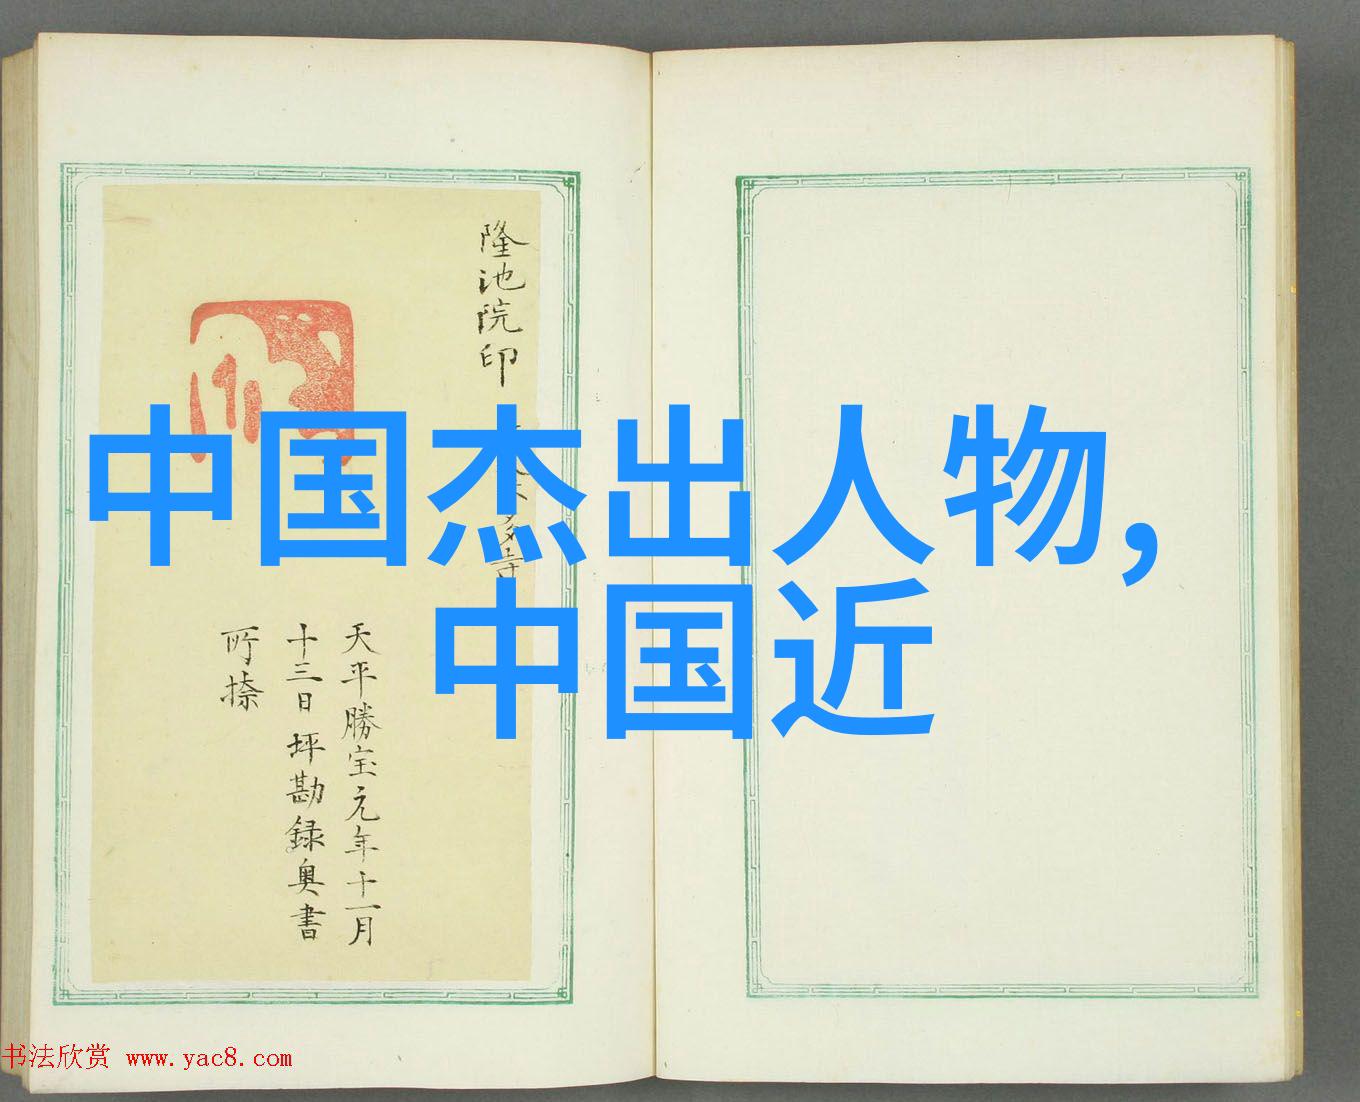 隆池院印
多寺
天平勝宝元年十一月
十三日坪勘録奥書
所捺
中国杰出人物,
中国近
书法欣赏 www.yac8.com